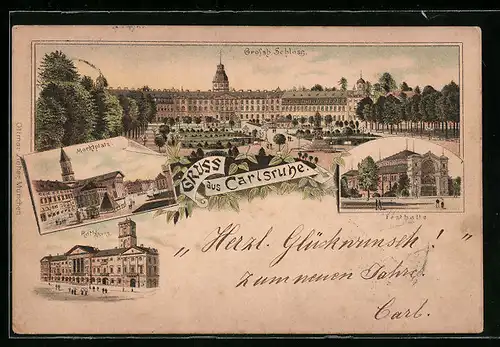 Grossh. Schloss.
Marktplatz
GRUSS
aus Carlsruhe.
Festhalle
Rathhaus
„Herzl. Glückwunsch!
zum neuen Jahre
Carl.
Ottmar Zieher, München